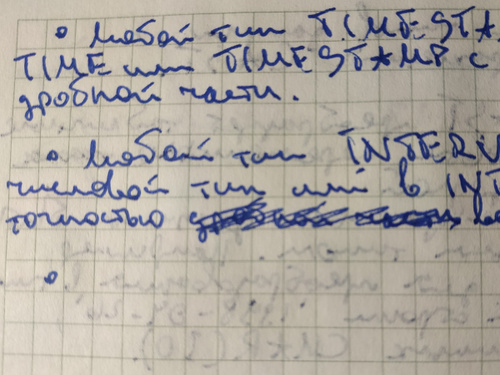 • любой тип TIMESTA
TIME или TIMESTAMP с
дробной части.
• Любой тип INTERV
числовой тип или в INT
точностью
•